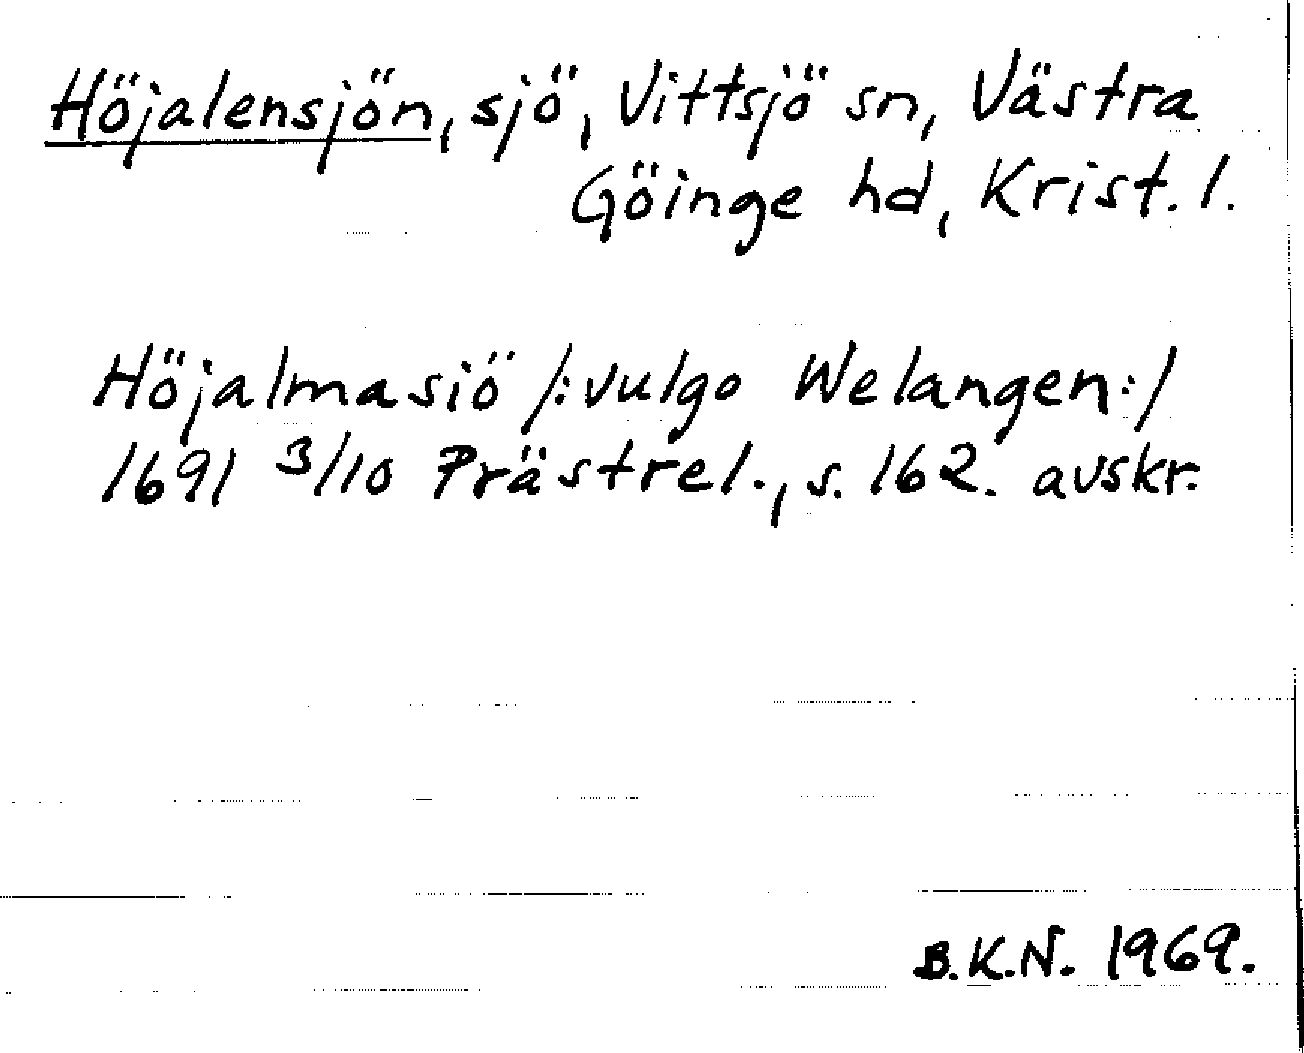 Höjalensjön, sjö, Vittsjö sn, Västra
Göinge hd, Krist. l.
Höjalmasiö /:vulgo Welangen:/
1691 3/10 Prästrel., s. 162. avskr.
B.K.N. 1969.